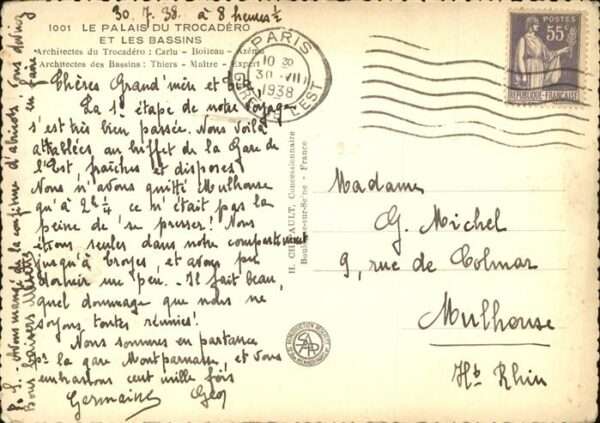 30.7.38. à 8 heures ½
1001 LE PALAIS DU TROCADÉRO
ET LES BASSINS
Architectes du Trocadéro : Carlu - Boileau - Azéma
Architectes des Bassins : Thiers - Maître - Expert
Chères Grand'mère et
La 1e étape de notre voyage
s'est très bien passée. Nous voilà
attablées au buffet de la Gare de
l'Est, fraîches et disposes.
Nous n'avons quitté Mulhouse
qu'à 2h ¼ ce n'était pas la
peine de se presser! Nous
étions seules dans notre compartiment
jusqu'à Troyes, et avons pu
dormir un peu. - Il fait beau,
quel dommage que nous ne
soyons, toutes réunies!
Nous sommes en partance
pr. la gare Montparnasse, et vous
embrassons cent mille fois
Germaine Geo
P.S. Avons mangé de la confiture d'abricots, vous devriez
en faire
Bons baisers
PARIS
10 30
30 VII
1938
GARE DE L'EST
POSTES
55c
REPUBLIQUE FRANÇAISE
H. CHIPAULT, Concessionnaire
Boulogne-sur-Seine - France
Madame
G. Michel
9, rue de Colmar
Mulhouse
Ht Rhin